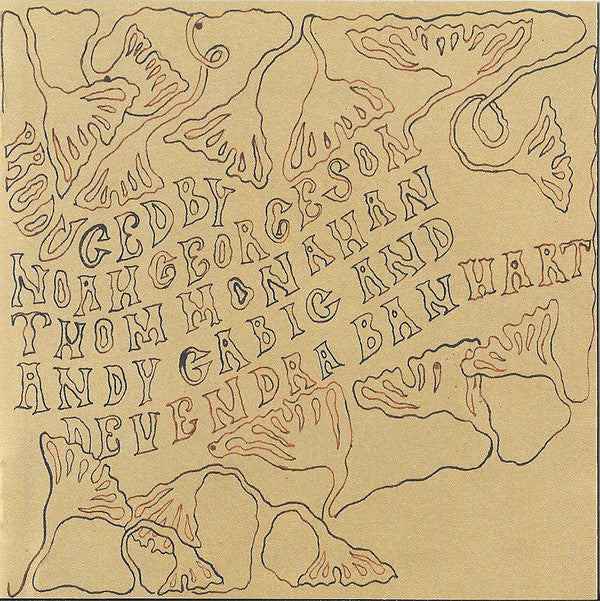 PRODUCED BY
NOAH GEORGESON
THOM MONAHAN
ANDY CABIC AND
DEVENDRA BANHART